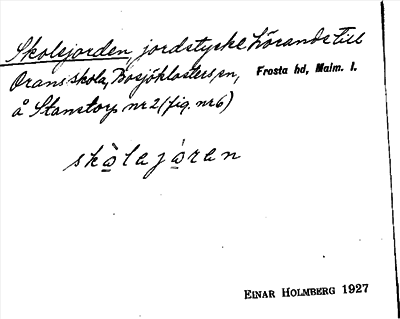 Skolejorden, jordstycke hörande till
Orans skola, Bosjöklosters sn, Frosta hd, Malm. l.
å Stanstorp nr 2 (fig. nr 6)
skò̱lajò̱ran
EINAR HOLMBERG 1927